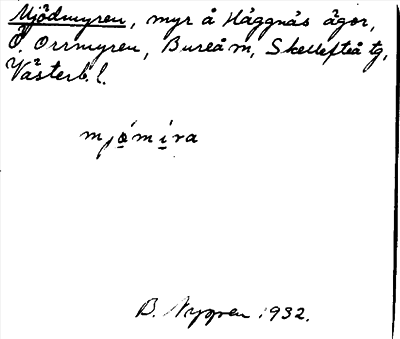 Mjödmyren, myr å Häggnäs ägor,
Ö. Orrmyren, Bureå m, Skellefteå tg,
Västerb. l.
mjo̱mi̱ra
B. Nygren 1932.